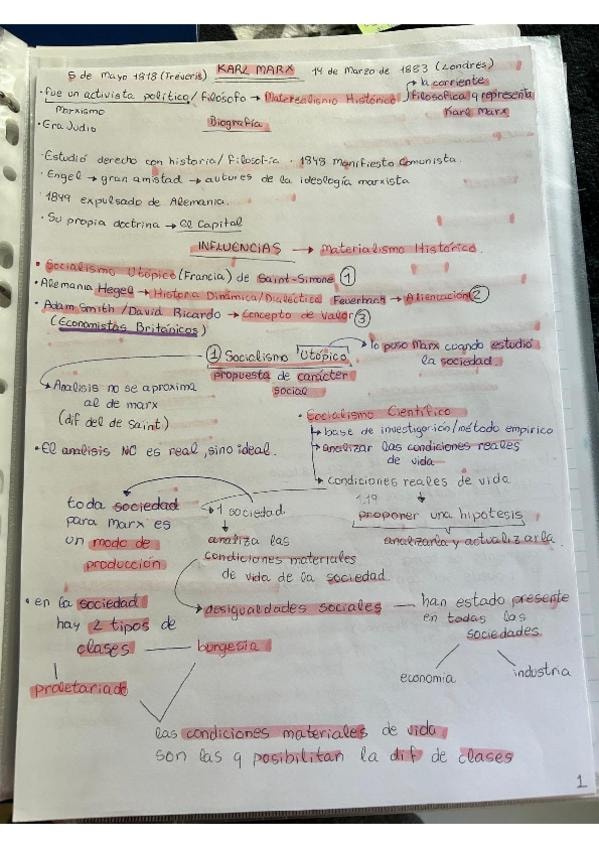 5 de Mayo 1818 (Tréveris) KARL MARX 14 de Marzo de 1883 (Londres)
· fue un activista político / filósofo → Materealismo Histórico → la corriente
filosófica q representa
Karl Marx
Marxismo
· Era Judio
Biografía
· Estudió derecho con historia / filosofía · 1848 manifiesto comunista.
· Engel → gran amistad → autores de la ideología marxista
· 1849 expulsado de Alemania.
· Su propia doctrina → el Capital
INFLUENCIAS → Materialismo Histórico.
· Socialismo Utópico (Francia) de Saint-Simone ①
· Alemania Hegel → Historia Dinámica / Dialéctica Feuerbach → Alienación ②
· Adam Smith / David Ricardo → concepto de valor ③
(Economistas Británicos)
① Socialismo Utópico → lo puso Marx cuando estudió
la sociedad.
propuesta de carácter
social
→ Analisis no se aproxima
al de marx
(dif del de Saint)
· El analisis NC es real, sino ideal.
· Socialismo Científico
→ base de investigación / método empírico
→ analizar las condiciones reales
de vida
→ condiciones reales de vida
proponer una hipotesis
analizarla y actualizarla.
toda sociedad
para marx es
un modo de
producción
→ 1 sociedad
analiza las
condiciones materiales
de vida de la sociedad.
→ desigualdades sociales — han estado presente
en todas las
sociedades.
economia
industria
· en la sociedad
hay 2 tipos de
clases — burgesia
proletariado
las condiciones materiales de vida
son las q posibilitan la dif de clases
1